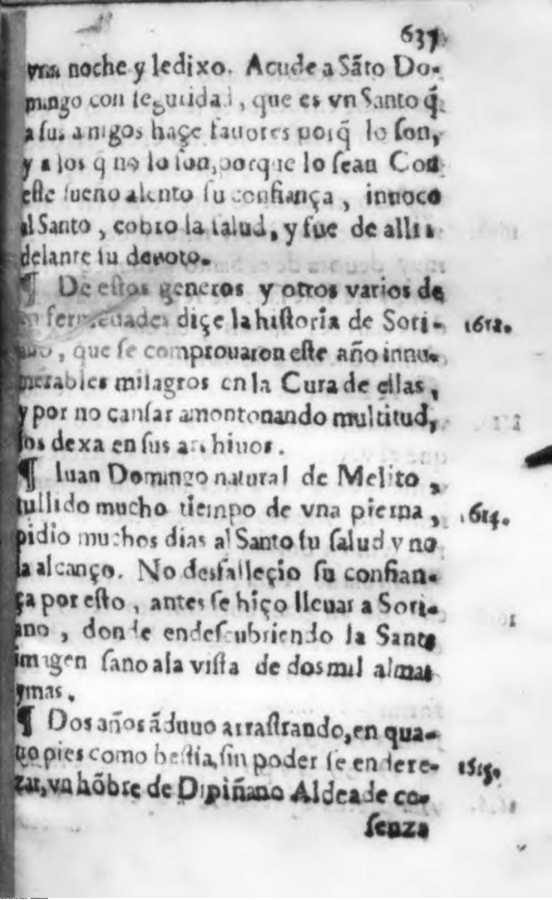 637
vna noche y ledixo. Acude a Sãto Do-
mingo con seguridad, que es vn Santo q̃
a sus amigos haçe fauores porq̃ lo son,
y a los q̃ no lo son, porque lo sean Con
este sueno alento su confiança, inuoco
al Santo, cobro la salud, y fue de alli a
delante su deuoto.
¶ De estos generos y otros varios de
en fermedades diçe la historia de Sori-
ano, que se comprouaron este año innu-
merables milagros en la Cura de ellas,
y por no cansar amontonando multitud,
los dexa en sus archiuos.
1612.
¶ Iuan Domingo natural de Melito,
tullido mucho tiempo de vna pierna,
pidio muchos dias al Santo su salud y no
la alcanço. No desfalleçio su confian-
ça por esto, antes se hiço lleuar a Sori-
ano, donde endescubriendo la Santa
imagen sano ala vista de dos mil almas
ymas.
1614.
¶ Dos años ãduuo arrastrando, en qua-
tro pies como bestia, sin poder se endere-
zar, vn hõbre de Dipiñano Aldea de co-
1615.
senza